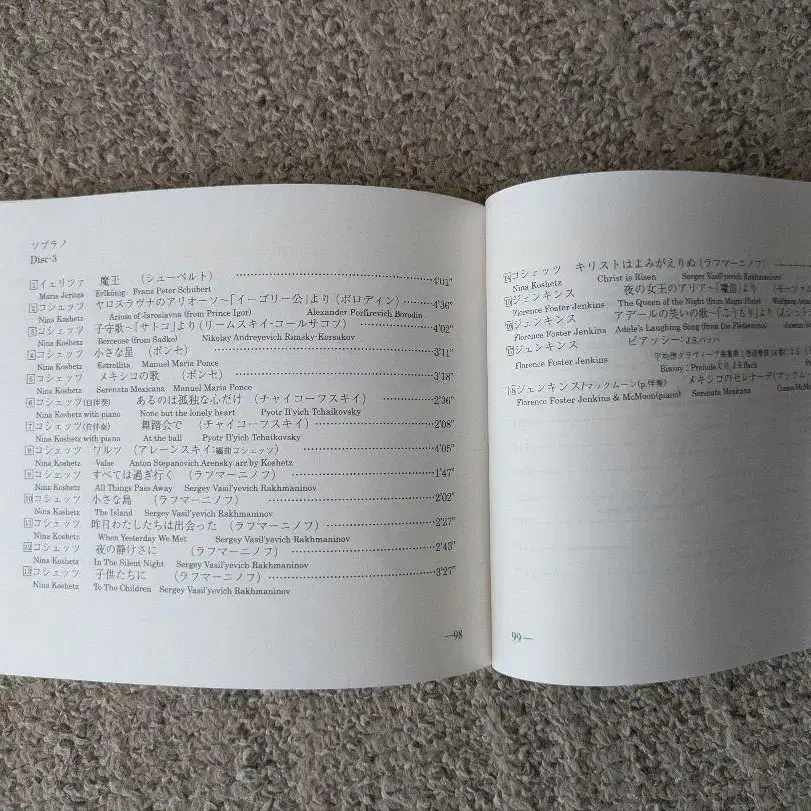 ソプラノ
Disc-3
1 イェリツァ 魔王 (シューベルト) 4'01"
Maria Jeritza Erlkönig Franz Peter Schubert
2 コシェッツ ヤロスラヴナのアリオーソ~「イーゴリー公」より (ボロディン) 4'36"
Nina Koshetz Arioso of Jaroslavna (from Prince Igor) Alexander Porfirevich Borodin
3 コシェッツ 子守歌~「サトコ」より (リームスキイ・コールサコフ) 4'02"
Nina Koshetz Berceuse (from Sadko) Nikolay Andreyevich Ramsky-Korsakov
4 コシェッツ 小さな星 (ポンセ) 3'11"
Nina Koshetz Estrellita Manuel Maria Ponce
5 コシェッツ メキシコの歌 (ポンセ) 3'18"
Nina Koshetz Serenata Mexicana Manuel Maria Ponce
6 コシェッツ(自伴奏) あるのは孤独な心だけ (チャイコーフスキイ) 2'36"
Nina Koshetz with piano None but the lonely heart Pyotr Il'yich Tchaikovsky
7 コシェッツ(自伴奏) 舞踏会で (チャイコーフスキイ) 2'08"
Nina Koshetz with piano At the ball Pyotr Il'yich Tchaikovsky
8 コシェッツ ワルツ (アレーンスキイ:編曲コシェッツ) 4'05"
Nina Koshetz Valse Anton Stepanovich Arensky-arr by Koshetz
9 コシェッツ すべては過ぎ行く (ラフマーニノフ) 1'47"
Nina Koshetz All Things Pass Away Sergey Vasil'yevich Rakhmaninov
10 コシェッツ 小さな島 (ラフマーニノフ) 2'02"
Nina Koshetz The Island Sergey Vasil'yevich Rakhmaninov
11 コシェッツ 昨日わたしたちは出会った (ラフマーニノフ) 2'27"
Nina Koshetz When Yesterday We Met Sergey Vasil'yevich Rakhmaninov
12 コシェッツ 夜の静けさに (ラフマーニノフ) 2'43"
Nina Koshetz In The Silent Night Sergey Vasil'yevich Rakhmaninov
13 コシェッツ 子供たちに (ラフマーニノフ) 3'27"
Nina Koshetz To The Children Sergey Vasil'yevich Rakhmaninov
—98
14 コシェッツ キリストはよみがえりぬ (ラフマーニノフ)
Nina Koshetz Christ is Risen Sergey Vasil'yevich Rakhmaninov
15 ジェンキンス 夜の女王のアリア~「魔笛」より
Florence Foster Jenkins The Queen of the Night (from Magic Flute)
16 ジェンキンス アデールの笑いの歌~「こうもり」より
Florence Foster Jenkins Adele's Laughing Song (from Die Fledermaus)
17 ジェンキンス ビアッシー:J.S.バッハ
Florence Foster Jenkins
Biassy : Prelude J.S Bach
18 ジェンキンス/マックムーン(p.伴奏) メキシコのセレナーデ
Florence Foster Jenkins & McMoon(piano) Serenata Mexicana
99—